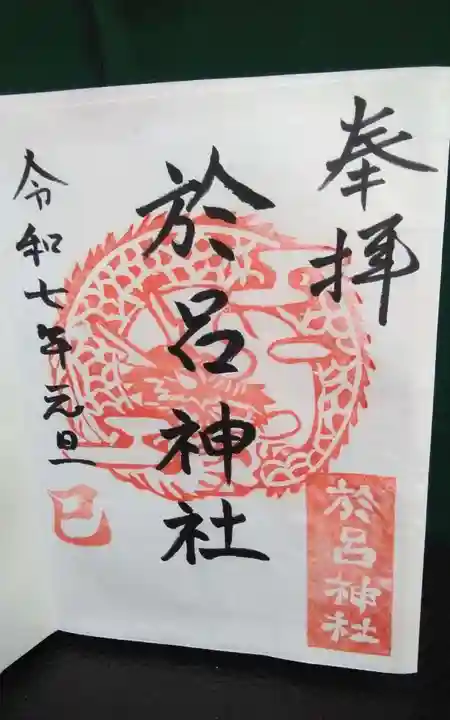 奉拝
於呂神社
令和七年元旦
巳
於呂神社